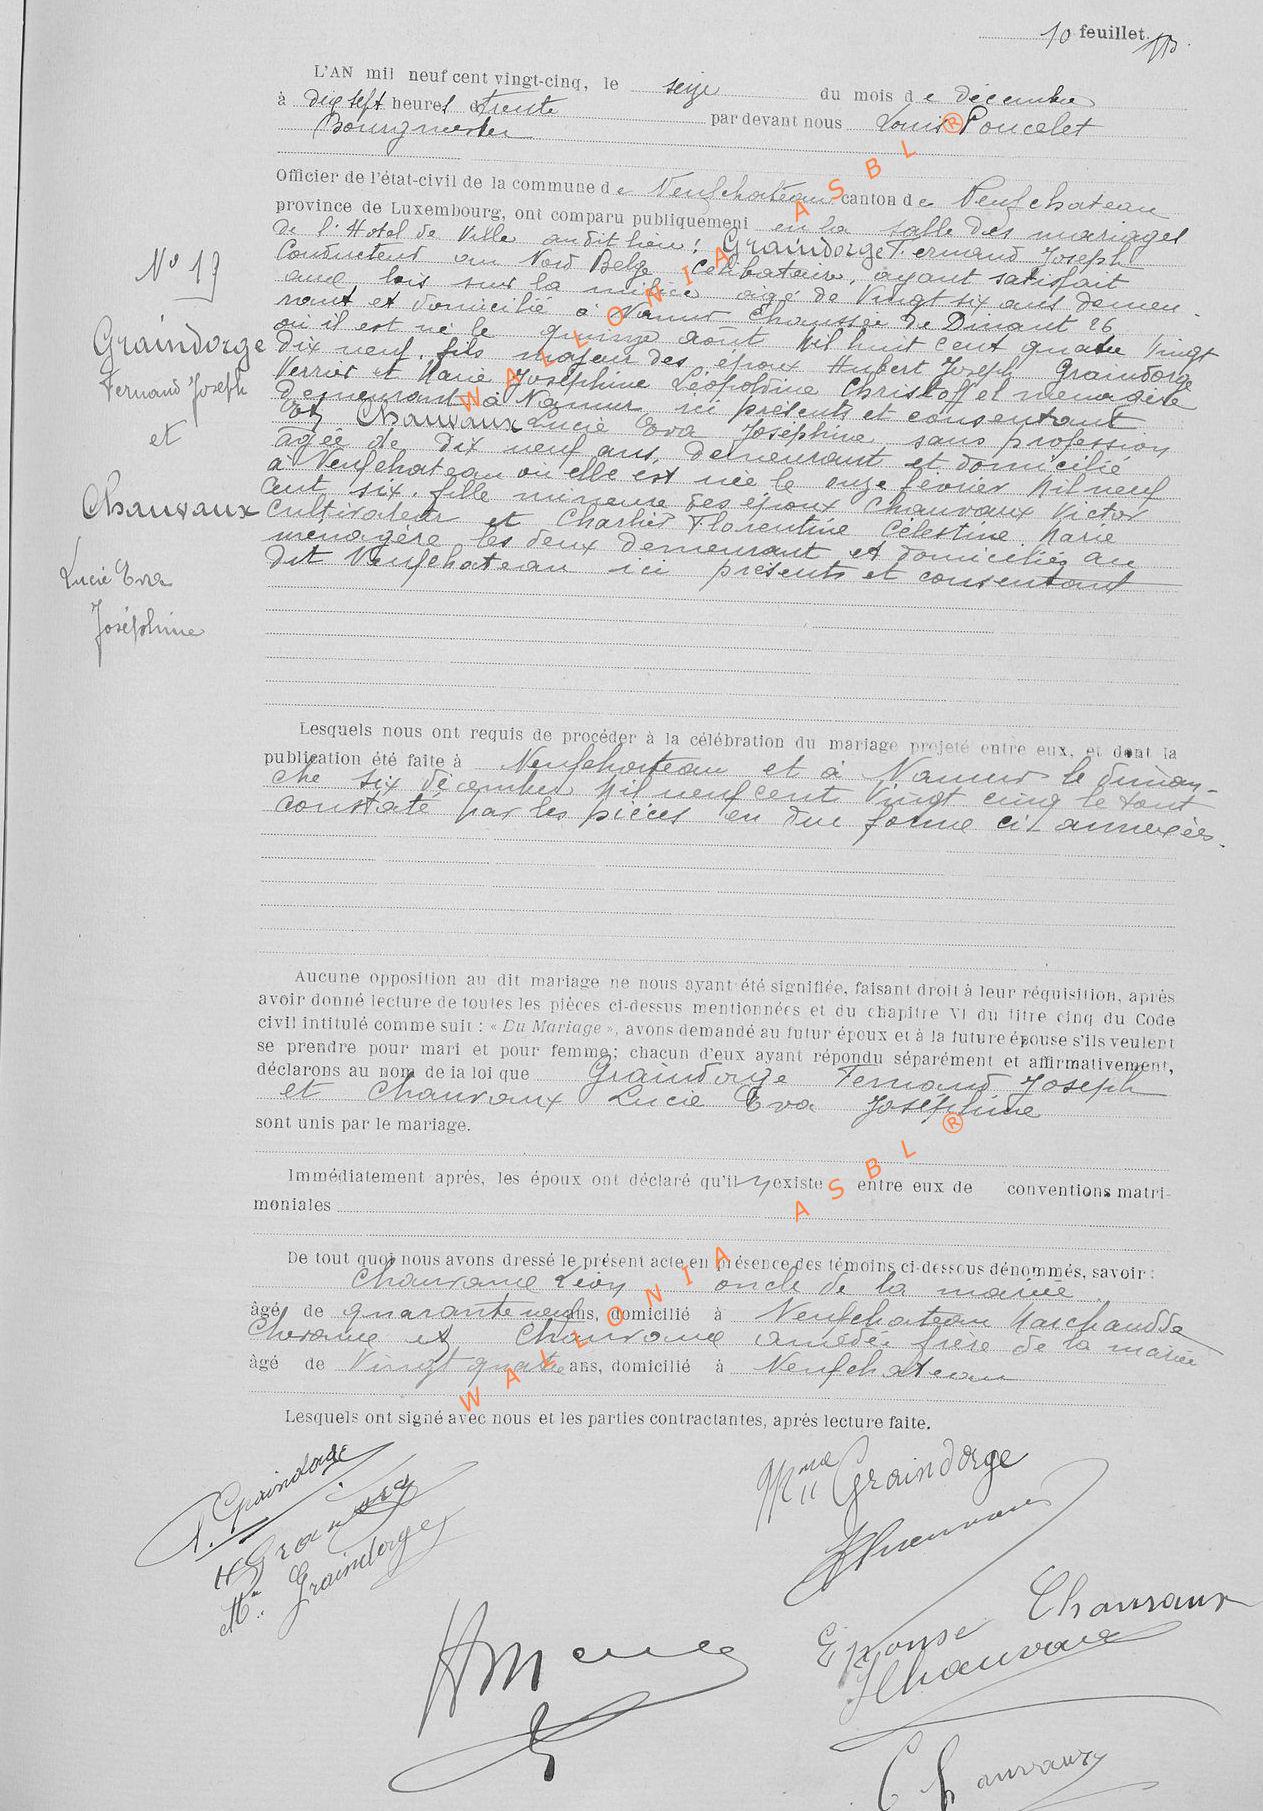 10 feuillet.
L'AN mil neuf cent vingt-cinq, le seize du mois de décembre
à dix sept heures trente par devant nous Louis Poncelet
Bourgmestre
Officier de l'état-civil de la commune de Neufchateau canton de Neufchateau
province de Luxembourg, ont comparu publiquement en la salle des mariages
de l'Hotel de Ville audit lieu : Graindorge Fernand Joseph
Conducteur au Nord Belge célibataire, ayant satisfait
aux lois sur la milice agé de Vingt six ans demeu
rant et domicilié à Namur Chaussée de Dinant 26
où il est né le quinze août Mil huit cent quatre Vingt
Dix neuf, fils majeur des époux Hubert Joseph Graindorge
Verrier et Marie Joséphine Léopoldine Christoffel ménagère
demeurant à Namur ici présents et consentant
Et Chauvaux Lucie Eva Joséphine, sans profession
agée de dix neuf ans, demeurant et domicilié
à Neufchateau où elle est née le onze février Mil neuf
cent six. fille mineure des époux Chauvaux Victor
Cultivateur et Charlier Florentine Célestine Marie
ménagère les deux demeurant et domiciliés au
dit Neufchateau ici présents et consentant
No 17
Graindorge
Fernand Joseph
et
Chauvaux
Lucie Eva
Joséphine
Lesquels nous ont requis de procéder à la célébration du mariage projeté entre eux, et dont la
publication été faite à Neufchateau et à Namur le diman-
che six décembre Mil neuf cent Vingt cinq le tout
constaté par les pièces en due forme ci annexées.
Aucune opposition au dit mariage ne nous ayant été signifiée, faisant droit à leur réquisition, après
avoir donné lecture de toutes les pièces ci-dessus mentionnées et du chapitre VI du titre cinq du Code
civil intitulé comme suit : « Du Mariage », avons demandé au futur époux et à la future épouse s'ils veulent
se prendre pour mari et pour femme ; chacun d'eux ayant répondu séparément et affirmativement,
déclarons au nom de la loi que Graindorge Fernand Joseph
et Chauvaux Lucie Eva Joséphine
sont unis par le mariage.
Immédiatement après, les époux ont déclaré qu'il existe entre eux de conventions matri-
moniales
De tout quoi nous avons dressé le présent acte en présence des témoins ci-dessous dénommés, savoir :
Chauvaux Léon oncle de la mariée
âgé de quarante neuf ans, domicilié à Neufchateau
et Chauvaux Amédée frère de la mariée
âgé de Vingt quatre ans, domicilié à Neufchateau
Lesquels ont signé avec nous et les parties contractantes, après lecture faite.
F. Graindorge
H Graindorge
M. Graindorge
Graindorge
Chauvaux
Epouse Chauvaux
Chauvaux
Chauvaux
WALLONIA ASBL ®
WALLONIA ASBL ®